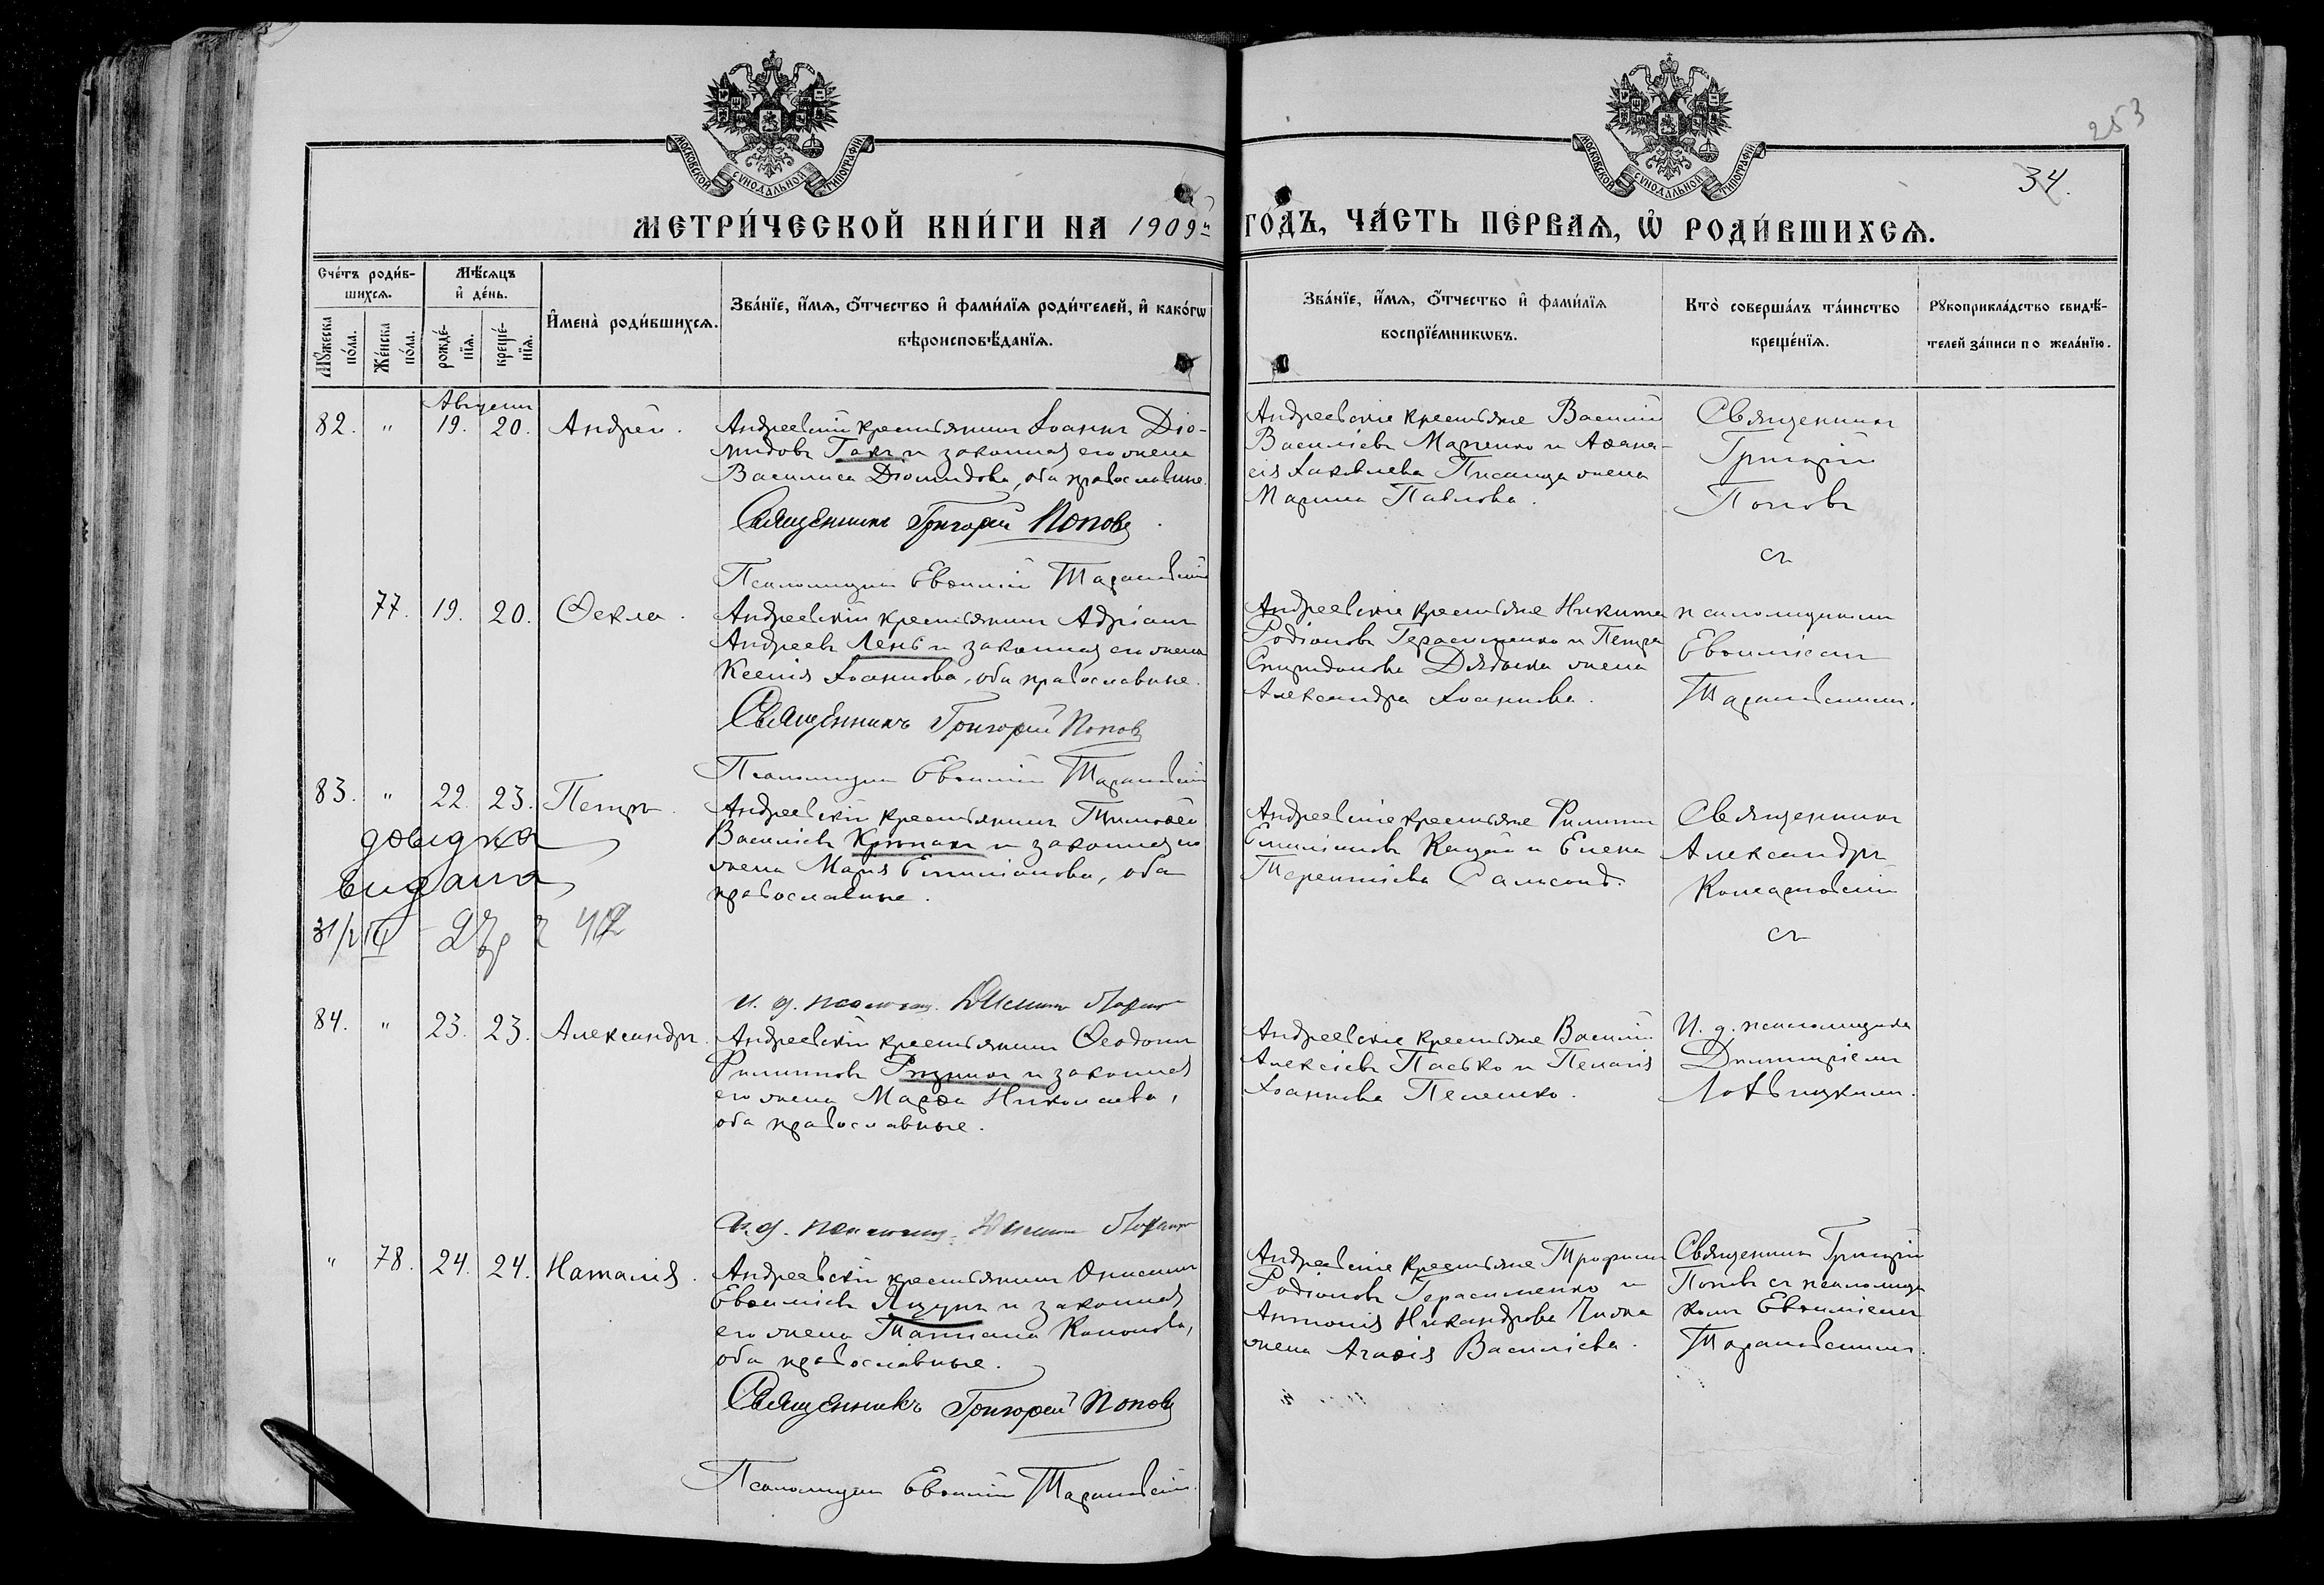 253
34.
МОСКОВСКОЙ СѴНОДАЛЬНОЙ ТИПОГРАФІИ
МОСКОВСКОЙ СѴНОДАЛЬНОЙ ТИПОГРАФІИ
МЕТРИ́ЧЕСКОЙ КНИ́ГИ НА 1909й ГО́ДЪ, ЧА́СТЬ ПЕ́РВАѦ, Ѡ҆ РОДИ́ВШИХСѦ.
Сче́тъ роди́в-
шихсѧ.
Мꙋ́жеска по́ла.
Же́нска по́ла.
Мѣ́сѧцъ
и҆ де́нь.
рожде́-
нїѧ.
креще́-
нїѧ.
И҆мена̀ роди́вшихсѧ.
Зва́нїе, и҆́мѧ, ѻ҆́тчество и҆ фами́лїѧ роди́телей, и҆ како́гѡ
вѣроисповѣ́данїѧ.
Зва́нїе, и҆́мѧ, ѻ҆́тчество и҆ фами́лїѧ
воспрїе́мникѡвъ.
Кто̀ соверша́лъ та́инство
креще́нїѧ.
Рꙋкоприкла́дство свидѣ́-
телей за́писи по жела́нїю.
Августъ
82. " 19. 20. Андрей.
Андреевскій крестьянинъ Іоаннъ Діо-
мидовъ Гакъ и законная его жена
Василиса Діомидова, оба православные.
Священникъ Григорій Поповъ
Псаломщикъ Евѳимій Тарановскій
Андреевскіе крестьяне Василій
Васильевъ Марченко и Аѳана-
сія Іаковлева Писанца жена
Марина Павлова.
Священникъ
Григорій
Поповъ
съ
77. 19. 20. Ѳекла.
Андреевскій крестьянинъ Адріанъ
Андреевъ Лень и законная его жена
Ксенія Іоаннова, оба православные.
Священникъ Григорій Поповъ
Псаломщикъ Евѳимій Тарановскій
Андреевскіе крестьяне Никита
Родіоновъ Герасименко и Петра
Спиридонова Дядька жена
Александра Іоаннова.
псаломщикомъ
Евѳиміемъ
Тарановскимъ.
83. " 22. 23. Петръ.
довідка
видана
31/
Андреевскій крестьянинъ Тимоѳей
Васильевъ Крюпакъ и законная его
жена Марія Емиліанова, оба
православные.
и. д. псаломщ.
Андреевскіе крестьяне Филиппъ
Емиліановъ Кацай и Елена
Терентіева
Священникъ
Александръ
съ
84. " 23. 23. Александръ.
Андреевскій крестьянинъ Ѳеодотъ
Филипповъ и законная
его жена Марѳа Николаева,
оба православные.
и. д. псаломщ.
Андреевскіе крестьяне Василій
Алексіевъ Пасько и Пелагія
Іоаннова Пелешко.
И. д. псаломщика
Димитріемъ
Ловѣицкимъ.
" 78. 24. 24. Наталія.
Андреевскій крестьянинъ Онисимъ
Евѳиміевъ Яцунъ и законная
его жена Татіана Кононова,
оба православные.
Священникъ Григорій Поповъ
Псаломщикъ Евѳимій Тарановскій.
Андреевскіе крестьяне Трофимъ
Родіоновъ Герасименко и
Антонія Никандрова Чижа
жена Агаѳія Васильева.
Священникъ Григорій
Поповъ съ псаломщи-
комъ Евѳиміемъ
Тарановскимъ.